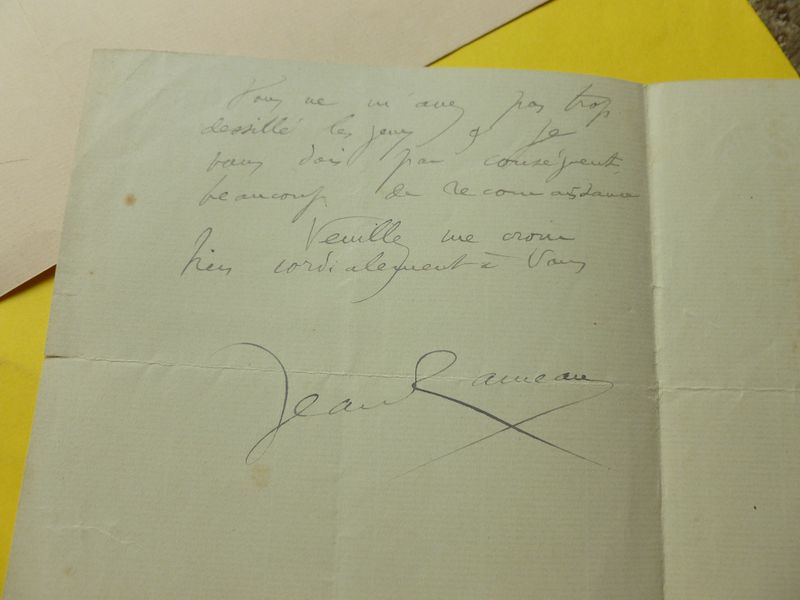 Vous ne m'avez pas trop
dessillé les yeux & je
vous dois par conséquent
beaucoup de reconnaissance
Veuillez me croire
bien cordialement à Vous
Jean Rameau